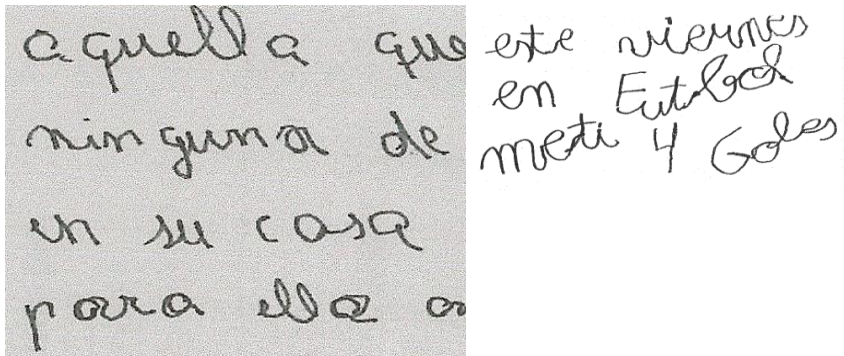 aquella que
ninguna de
en su casa
para ella a
este viernes
en Futbol
meti 4 Goles